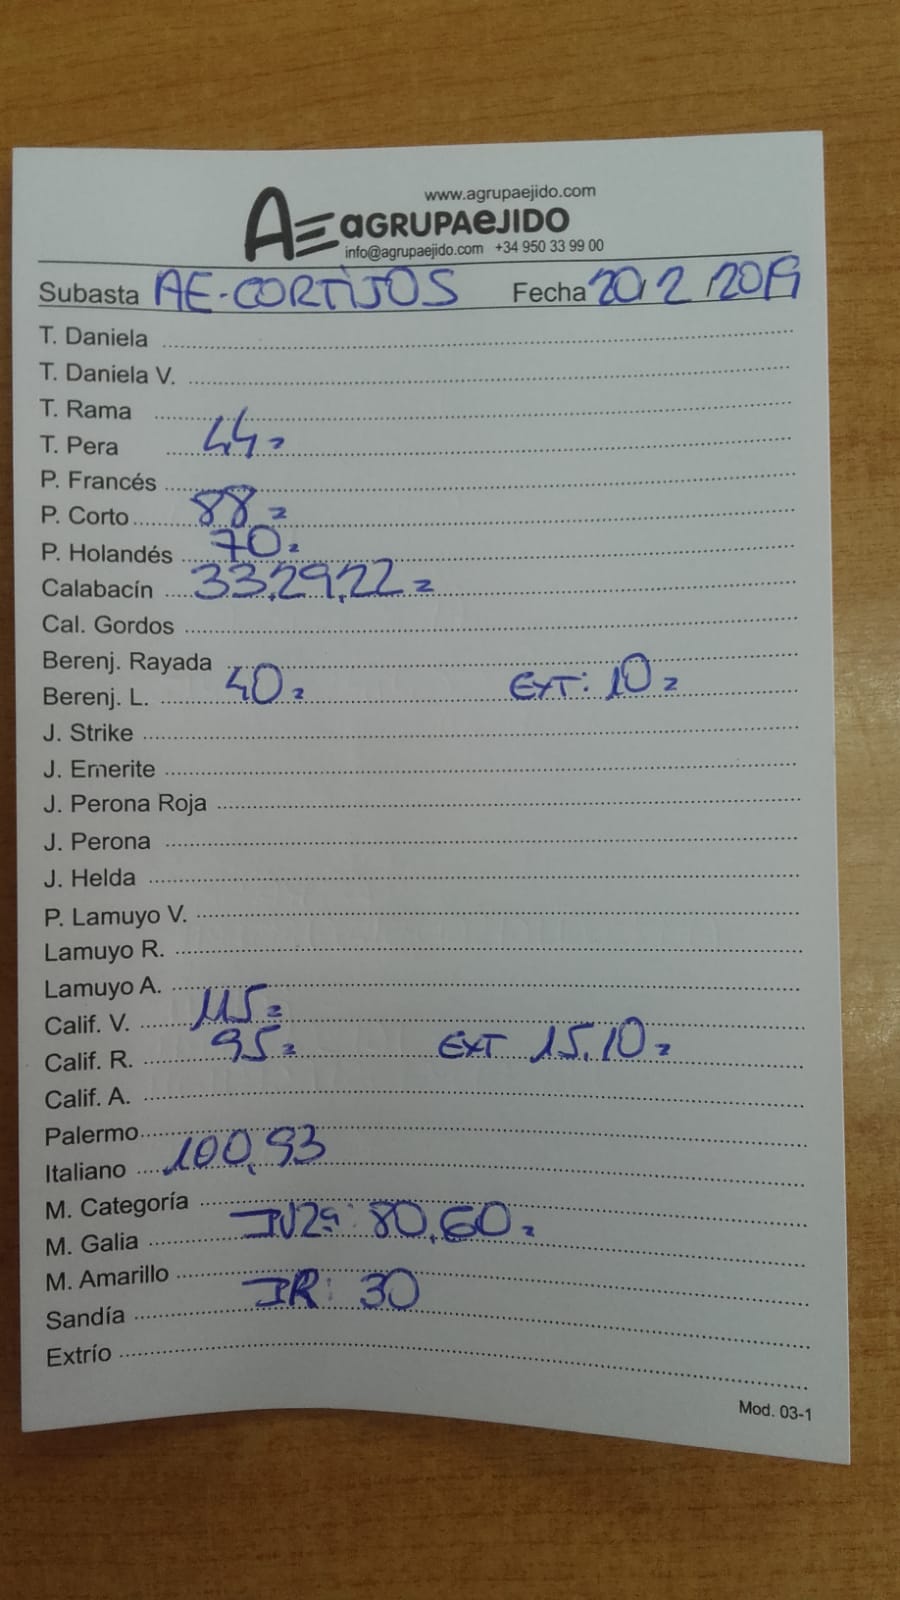 www.agrupaejido.com
AE aGRUPAeJIDO
info@agrupaejido.com +34 950 33 99 00
Subasta AE-CORTIJOS Fecha 20/2/2019
T. Daniela
T. Daniela V.
T. Rama
T. Pera 44=
P. Francés
P. Corto 88=
P. Holandés 70=
Calabacín 33,29,22=
Cal. Gordos
Berenj. Rayada
Berenj. L. 40= EXT: 10=
J. Strike
J. Emerite
J. Perona Roja
J. Perona
J. Helda
P. Lamuyo V.
Lamuyo R.
Lamuyo A.
Calif. V. 115=
Calif. R. 95= EXT 15,10=
Calif. A.
Palermo
Italiano 100,93
M. Categoría
M. Galia : 80,60=
M. Amarillo
Sandía : 30
Extrío
Mod. 03-1